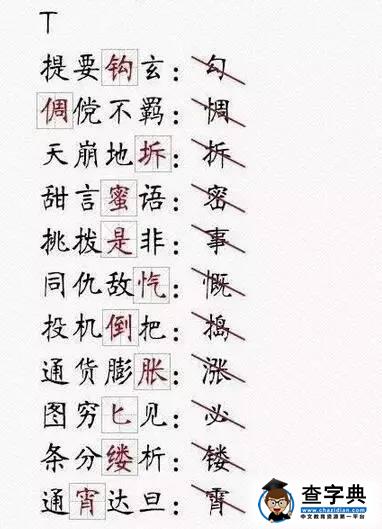 T
提要钩玄：勾
倜傥不羁：惆
天崩地坼：拆
甜言蜜语：密
挑拨是非：事
同仇敌忾：慨
投机倒把：捣
通货膨胀：涨
图穷匕见：必
条分缕析：镂
通宵达旦：霄
查字典
中文教育资源第一平台
www.chazidian.com